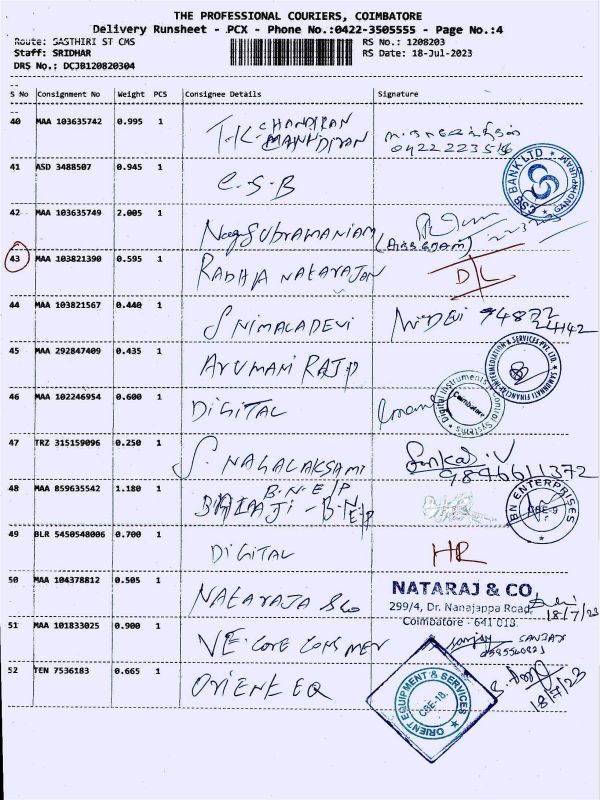 THE PROFESSIONAL COURIERS, COIMBATORE
Delivery Runsheet - PCX - Phone No.:0422-3505555 - Page No.:4
Route: SASTHIRI ST CMS
RS No.: 1208203
Staff: SRIDHAR
RS Date: 18-Jul-2023
DRS No.: DCJB120820304
S No Consignment No Weight PCS Consignee Details Signature
40 MAA 103635742 0.995 1 T.K. CHANDIRAN
0422223516
41 ASD 3488507 0.945 1 C.S.B
CSB BANK LTD GANDHIPURAM
42 MAA 103635749 2.005 1 Nagsubramaniam
43 MAA 103821390 0.595 1 RADHA NATARAJAN D/L
44 MAA 103821567 0.440 1 S NIMALADEVI
45 MAA 292847409 0.435 1 Arumani RAJP
46 MAA 102246954 0.600 1 DIGITAL
Digital Instruments Control Systems Coimbatore
47 TRZ 315159096 0.250 1 S. NAGALAKSAMI
9896611372
48 MAA 859635542 1.180 1 B.N.E/P
BALAJI - B.N.E/P
BN ENTERPRISES CBE-9
49 BLR 5450548006 0.700 1 DIGITAL HR
50 MAA 104378812 0.505 1 NATARAJA & Co
NATARAJ & CO
299/4, Dr. Nanajappa Road,
Coimbatore - 641 018.
18/7/23
51 MAA 101833025 0.900 1 VE. CORE CONSMER
Sanjay SANJAY
52 TEN 7536183 0.665 1 ORIENT EQ
ORIENT EQUIPMENT & SERVICES CBE-18.
18/7/23